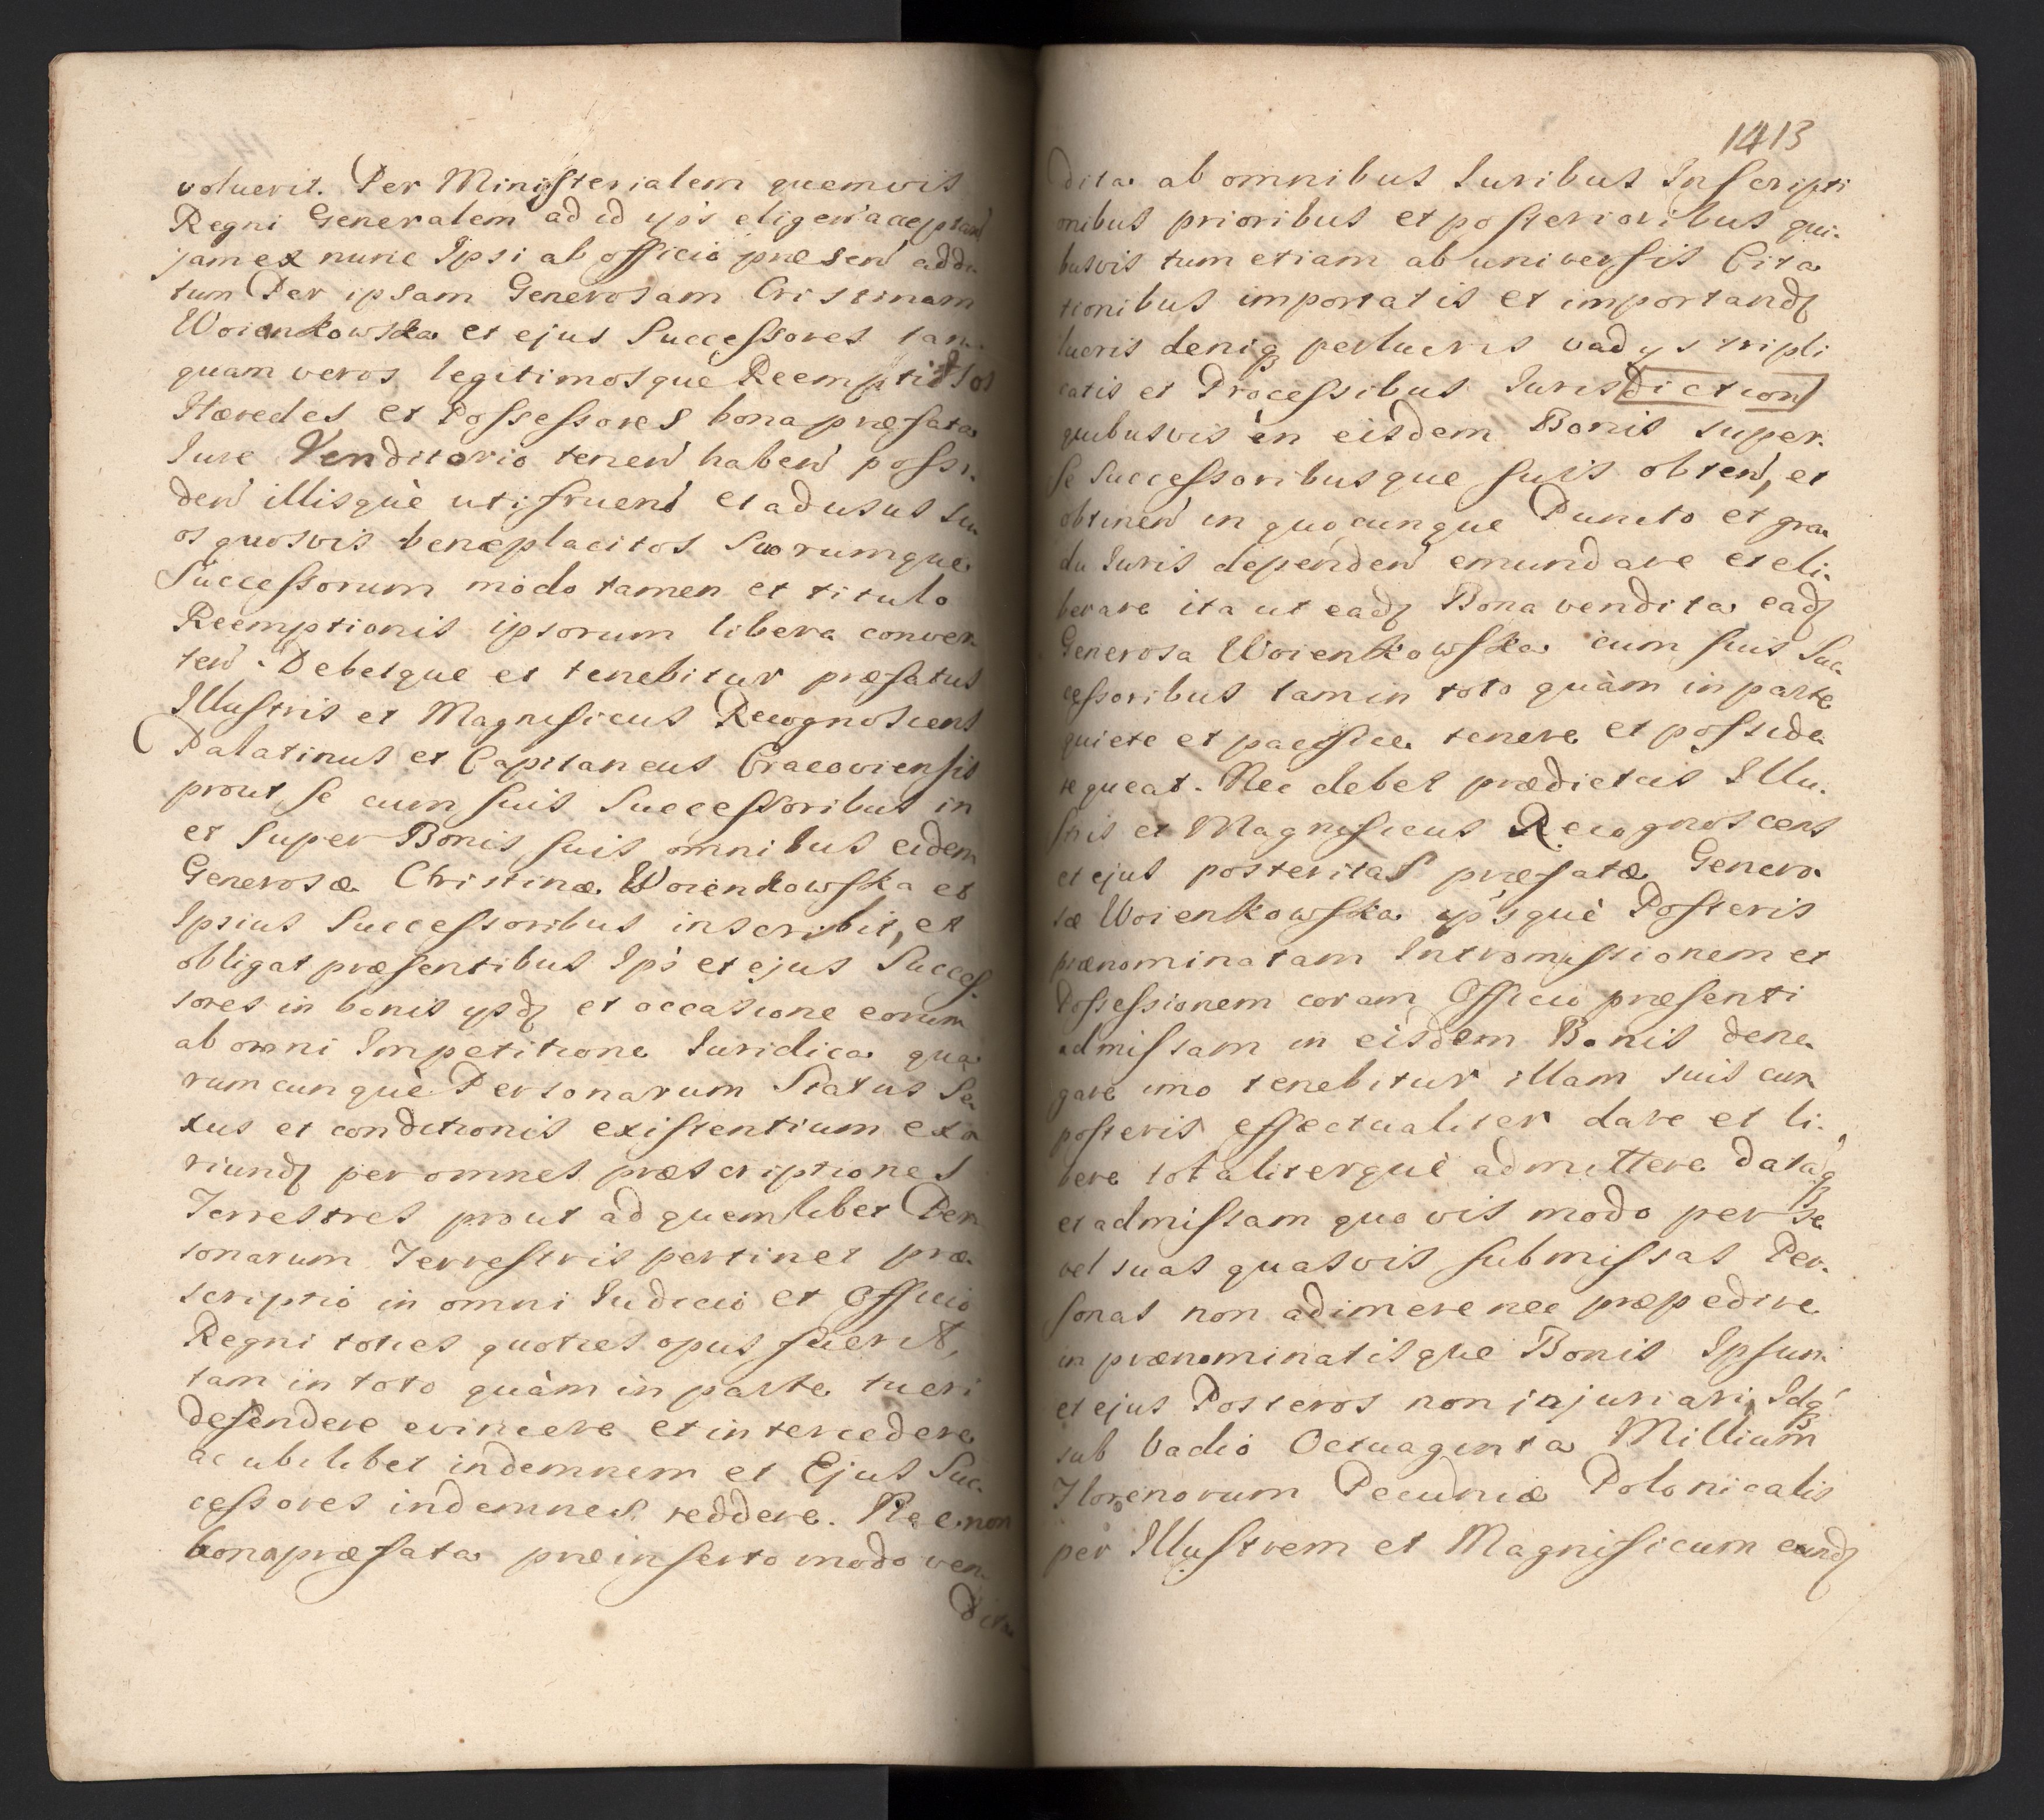 voluerit. Per Ministerialem quemvis
Regni Generalem ad id yp's eligen' acceptan'
jam ex nunc Ipsi ab officio præsen' addi
tum Per ipsam Generosam Cristinam
Woienkowska et ejus Successores tan-
quam veros legitimosque Reemptitios
Hæredes et Possessores bona præfata
Jure Venditorio tenen' haben' possi-
den' illisquè utifruen' et ad usus su
os quosvis beneplacitos Suorumque
Successorum modo tamen et titulo
Reemptionis ipsorum libera conver
ten'. Debetque et tenebitur præfatus
Illustris et Magnificus Recognoscens
Palatinus et Capitaneus Cracoviensis
prout se cum suis Successoribus in
et super Bonis suis omnibus eidem
Generosæ Christinæ Woienkowska et
Ipsius Successoribus inscribit, et
obligat præsentibus Ips' et ejus Succes-
sores in bonis ypsdȝ et occasione eorum
ab omni Impetitione Iuridica qua
rumcunquè Personarum Status Se
xus et conditionis existentium exo
riundȝ per omnes præscriptiones
Terrestres prout ad quemlibet Per
sonarum Terrestris pertinet præ-
scriptio in omni Iudicio et Officio
Regni toties quoties opus fuerit,
tam in toto quàm in parte tueri
defendere evincere et intercedere
ac ubilibet indemnem et Ejus Suc-
cessores indemnes reddere. Nec non
bona præfata præinserto modo ven-
dita
1413
dita ab omnibus Iuribus Inscripti
onibus prioribus et posterioribus qui-
busvis tum etiam ab universis Cita
tionibus importatis et importandȝ
lucris deniqȝ perlucris vadys tripli
catis et Processibus Iurisdiction
quibusvis in eisdem Bonis super
se Successoribusque suis obten', et
obtinen' in quocunque Puncto et gra
du Iuris dependen' emundare et eli-
berare ita ut eadȝ Bona vendita eadȝ
Generosa Woienkowska cum suis Suc
cessoribus tam in toto quàm in parte
quiete et pacifice tenere et posside
re queat. Nec debet prædictus Illu-
stris et Magnificus Recognoscens
et ejus posteritas præfatæ Genero
sæ Woienkowska yp'squè Posteris
prænominatam Intromissionem et
Possessionem coram Officio præsenti
admissam in eisdem Bonis dene
gare imo tenebitur illam suis cum
posteris effectualiter dare et li-
bere totaliterquè admittere datáqȝ
et admissam quovis modo per se
vel suas quasvis submissas Per-
sonas non adimere nec præpedire
in prænominatisque Bonis Ipsum
et ejus Posteros non injuriari, Idqȝ
sub Vadio Octuaginta Millium
Florenorum Pecuniæ Polonicalis
per Illustrem et Magnificum eundȝ